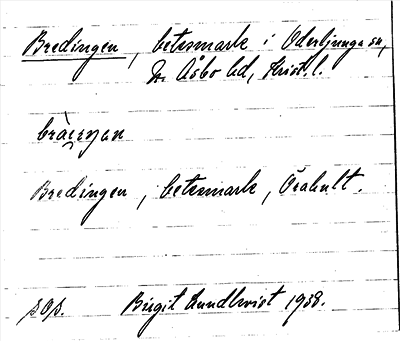 Bredingen, betesmark i Oderljunga sn,
N. Åsbo hd, Krist. l.
bràeŋən
Bredingen, betesmark, Örahult.
sOp. Birgit Lundkvist 1938.